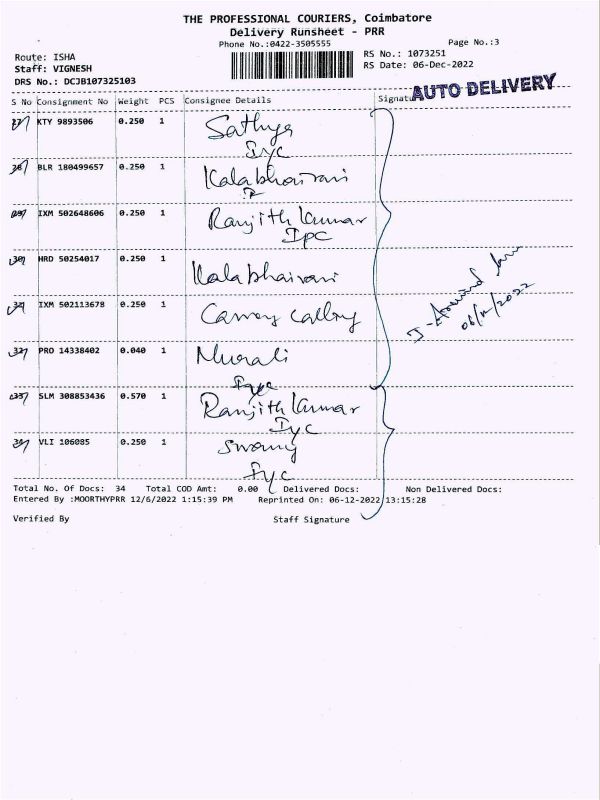 THE PROFESSIONAL COURIERS, Coimbatore
Delivery Runsheet - PRR
Phone No.:0422-3505555
Page No.:3
Route: ISHA
RS No.: 1073251
Staff: VIGNESH
RS Date: 06-Dec-2022
DRS No.: DCJB107325103
AUTO DELIVERY
S No Consignment No Weight PCS Consignee Details
27 KTY 9893506 0.250 1 Sathya
Iyc
28 BLR 180499657 0.250 1 Kalabhairavi
29 IXM 502648606 0.250 1 Ranjith Kumar
Ipc
30 HRD 50254017 0.250 1 Kalabhairavi
31 IXM 502113678 0.250 1
J-Aravind
06/12/2022
32 PRO 14338402 0.040 1 Murali
Iyc
33 SLM 308853436 0.570 1 Ranjith Kumar
Iyc
34 VLI 106085 0.250 1 Swamy
Iyc
Total No. Of Docs: 34 Total COD Amt: 0.00 Delivered Docs: Non Delivered Docs:
Entered By :MOORTHYPRR 12/6/2022 1:15:39 PM Reprinted On: 06-12-2022 13:15:28
Verified By Staff Signature